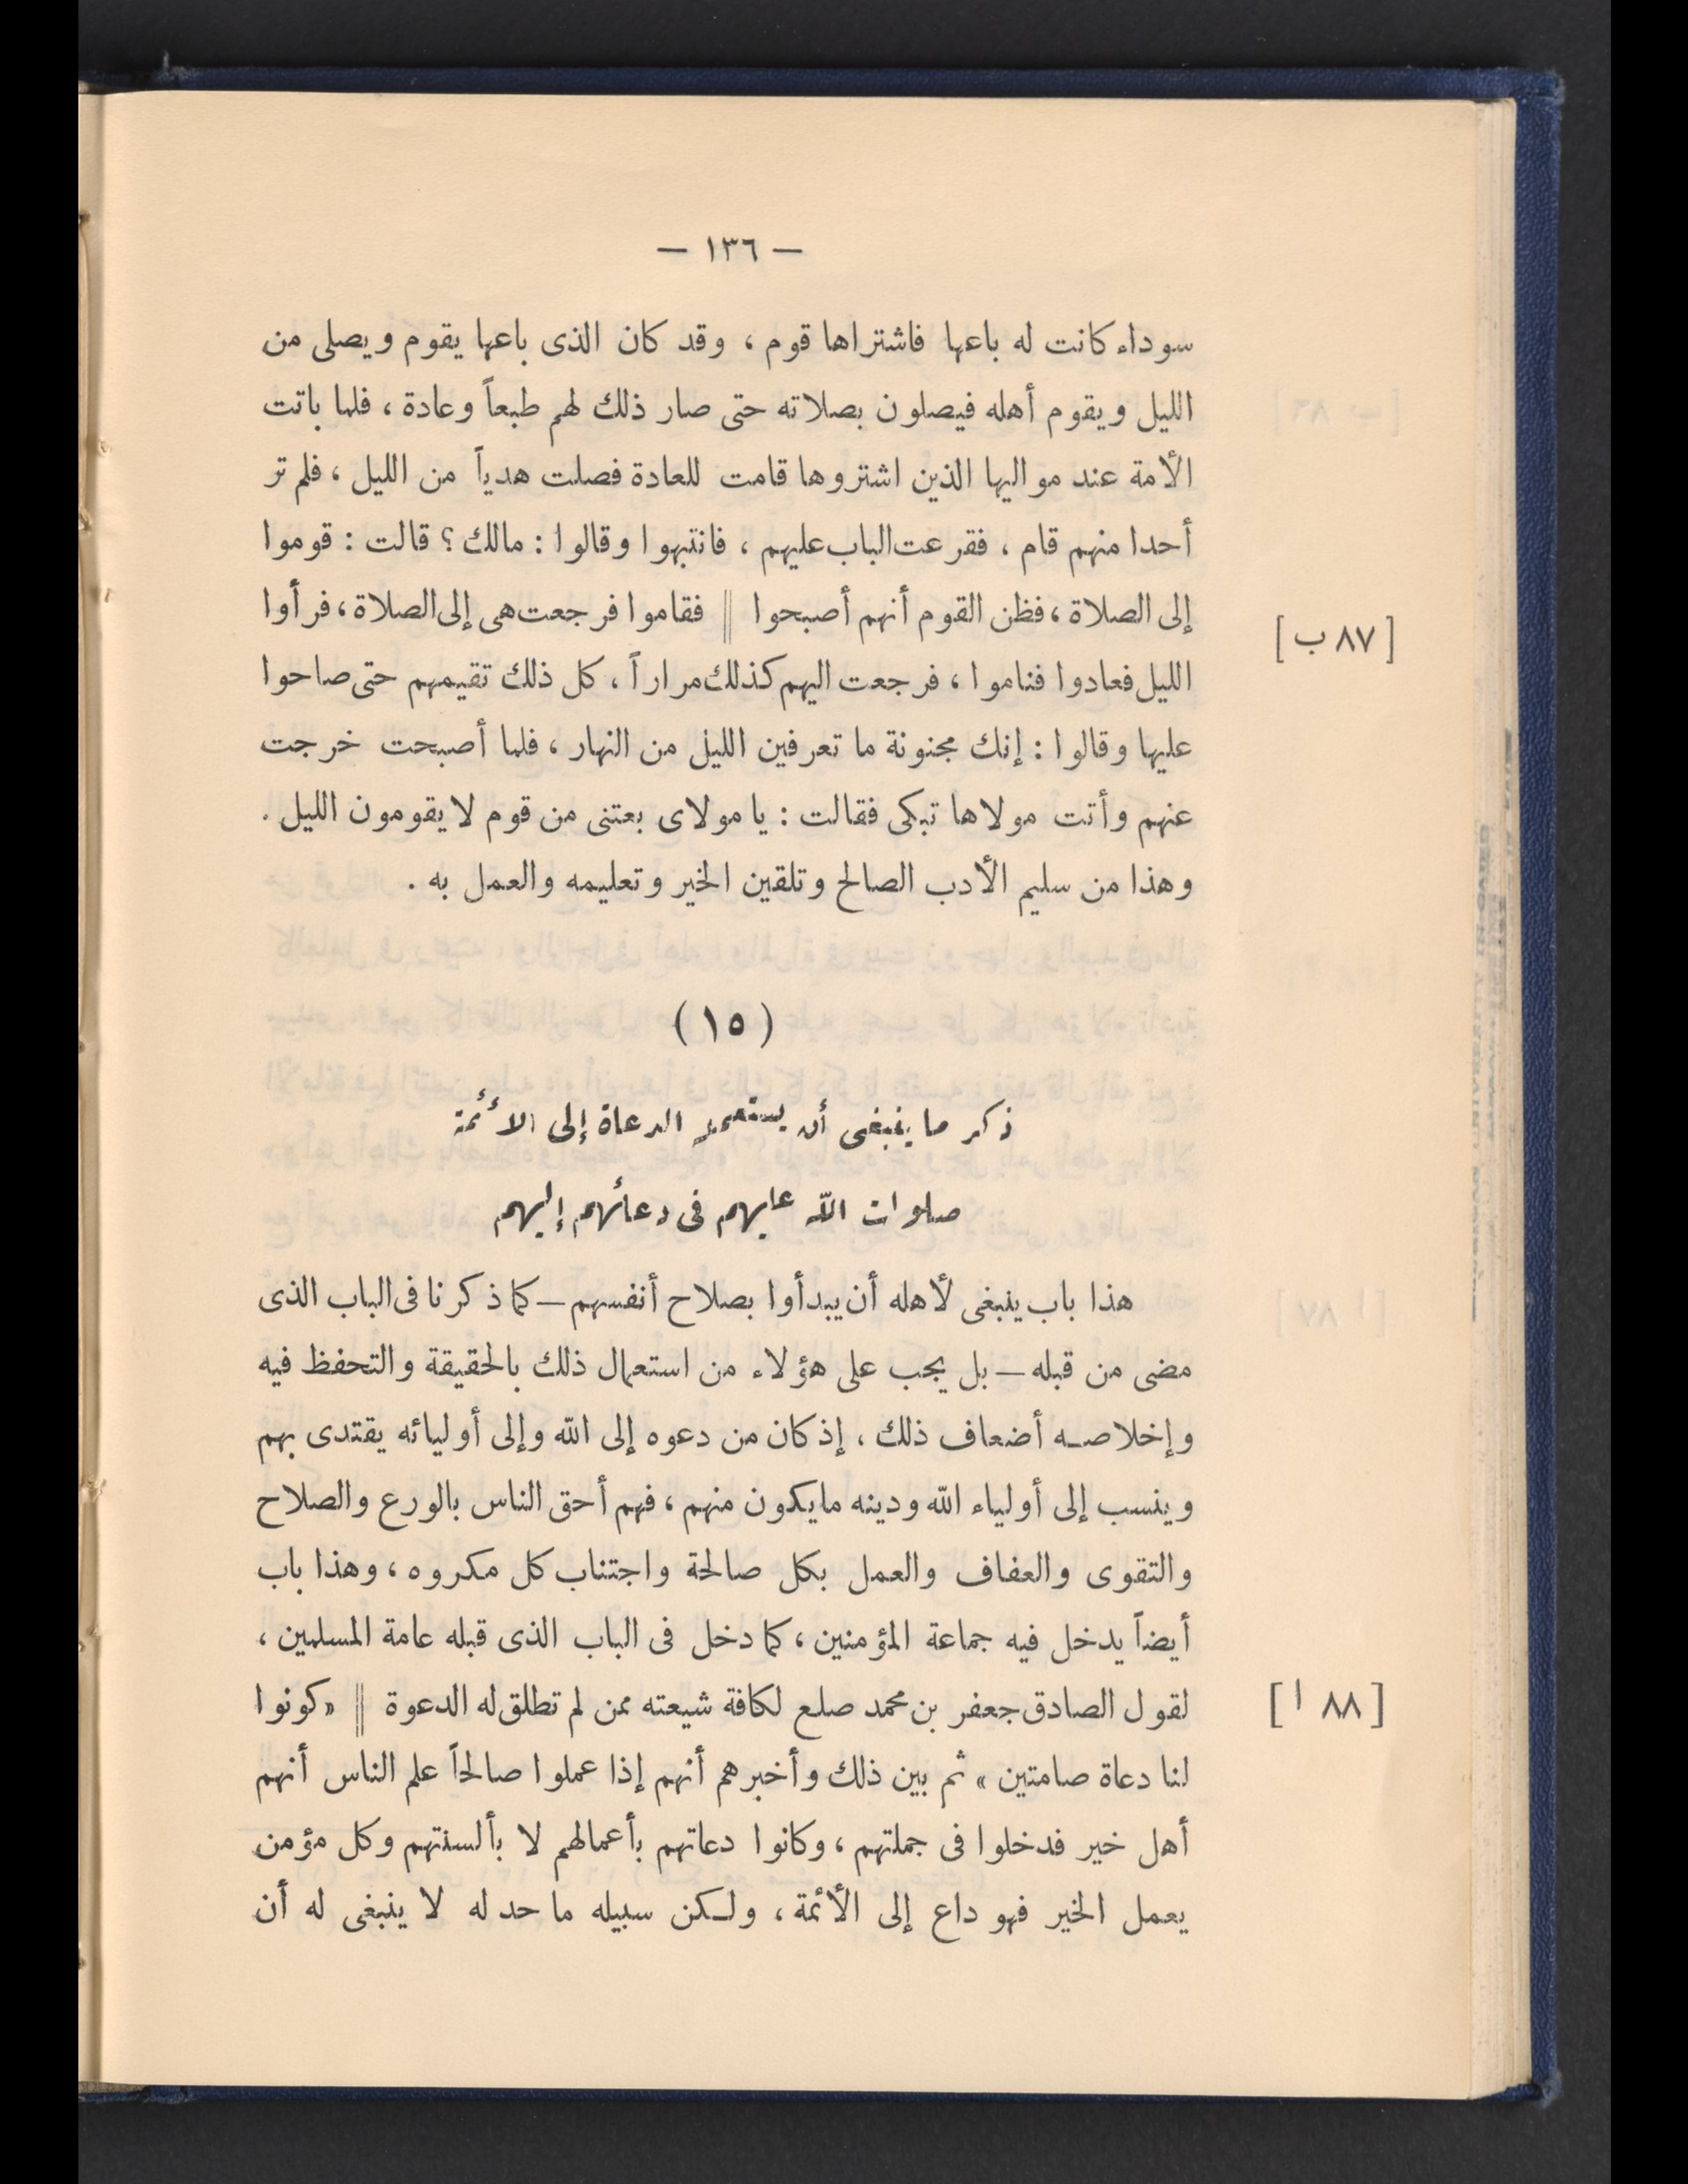 — ١٣٦ —
سوداء كانت له باعها فاشتراها قوم ، وقد كان الذى باعها يقوم ويصلى من
الليل ويقوم أهله فيصلون بصلاته حتى صار ذلك لهم طبعاً وعادة ، فلما باتت
الأمة عند مواليها الذين اشتروها قامت للعادة فصلت هدياً من الليل ، فلم تر
أحدا منهم قام ، فقرعت الباب عليهم ، فانتبهوا وقالوا : مالك ؟ قالت : قوموا
إلى الصلاة ، فظن القوم أنهم أصبحوا || فقاموا فرجعت هى إلى الصلاة ، فرأوا
[ ٨٧ ب ]
الليل فعادوا فناموا ، فرجعت اليهم كذلك مراراً ، كل ذلك تقيمهم حتى صاحوا
عليها وقالوا : إنك مجنونة ما تعرفين الليل من النهار ، فلما أصبحت خرجت
عنهم وأتت مولاها تبكى فقالت : يا مولاى بعتنى من قوم لا يقومون الليل .
وهذا من سليم الأدب الصالح وتلقين الخير وتعليمه والعمل به .
( ١٥ )
ذكر ما ينبغى أن يستعمله الدعاة إلى الأئمة
صلوات الله عليهم فى دعائهم إليهم
هذا باب ينبغى لأهله أن يبدأوا بصلاح أنفسهم — كما ذكرنا فى الباب الذى
مضى من قبله — بل يجب على هؤلاء من استعمال ذلك بالحقيقة والتحفظ فيه
وإخلاصه أضعاف ذلك ، إذ كان من دعوه إلى الله وإلى أوليائه يقتدى بهم
وينسب إلى أولياء الله ودينه ما يكون منهم ، فهم أحق الناس بالورع والصلاح
والتقوى والعفاف والعمل بكل صالحة واجتناب كل مكروه ، وهذا باب
أيضاً يدخل فيه جماعة المؤمنين ، كما دخل فى الباب الذى قبله عامة المسلمين ،
لقول الصادق جعفر بن محمد صلع لكافة شيعته ممن لم تطلق له الدعوة || « كونوا
[ ٨٨ ا ]
لنا دعاة صامتين » ثم بين ذلك وأخبرهم أنهم إذا عملوا صالحاً علم الناس أنهم
أهل خير فدخلوا فى جملتهم ، وكانوا دعاتهم بأعمالهم لا بألسنتهم وكل مؤمن
يعمل الخير فهو داع إلى الأئمة ، ولكن سبيله ما حد له لا ينبغى له أن